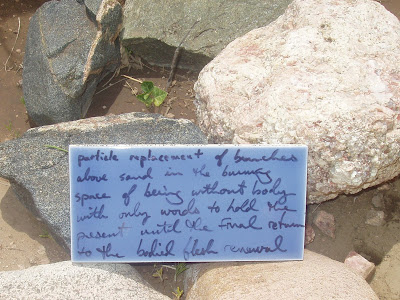 particle replacement of branches
above sand in the burning
space of being without body
with only words to hold the
present until the Final return
to the bodied flesh renewal